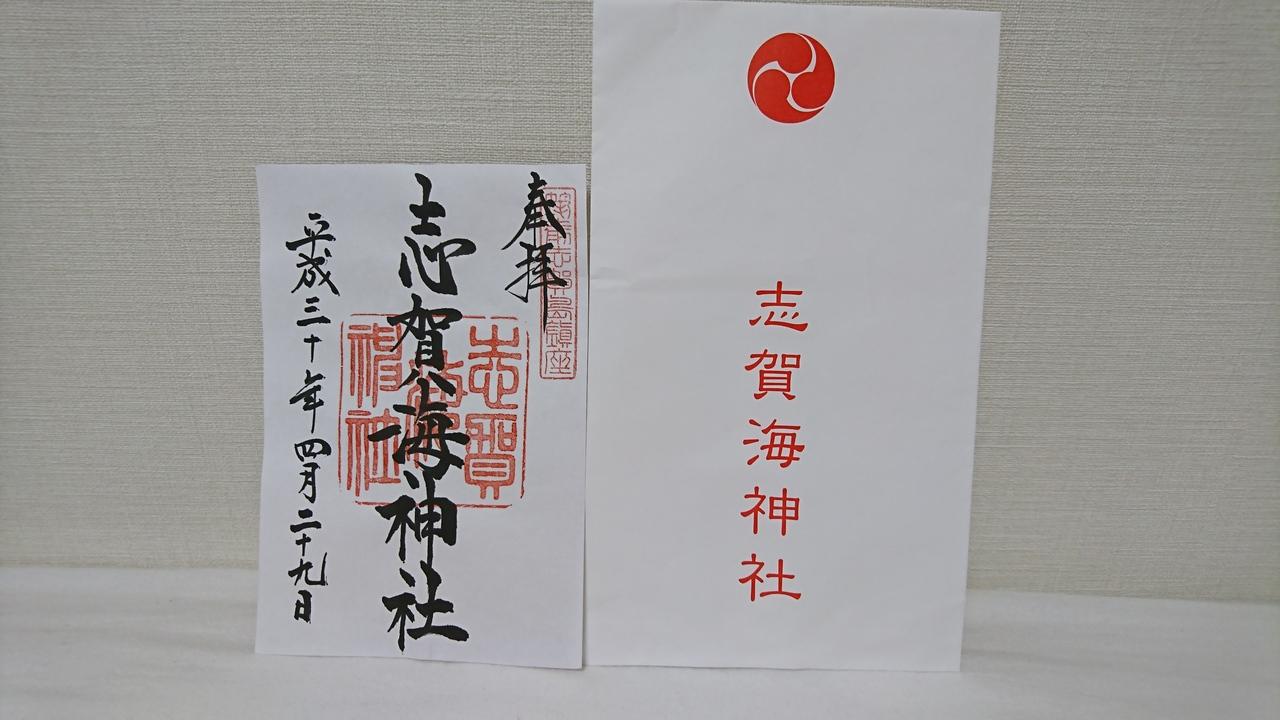 奉拝
筑前志賀島鎮座
志賀海神社
志賀海神社
平成三十年四月二十九日
志賀海神社